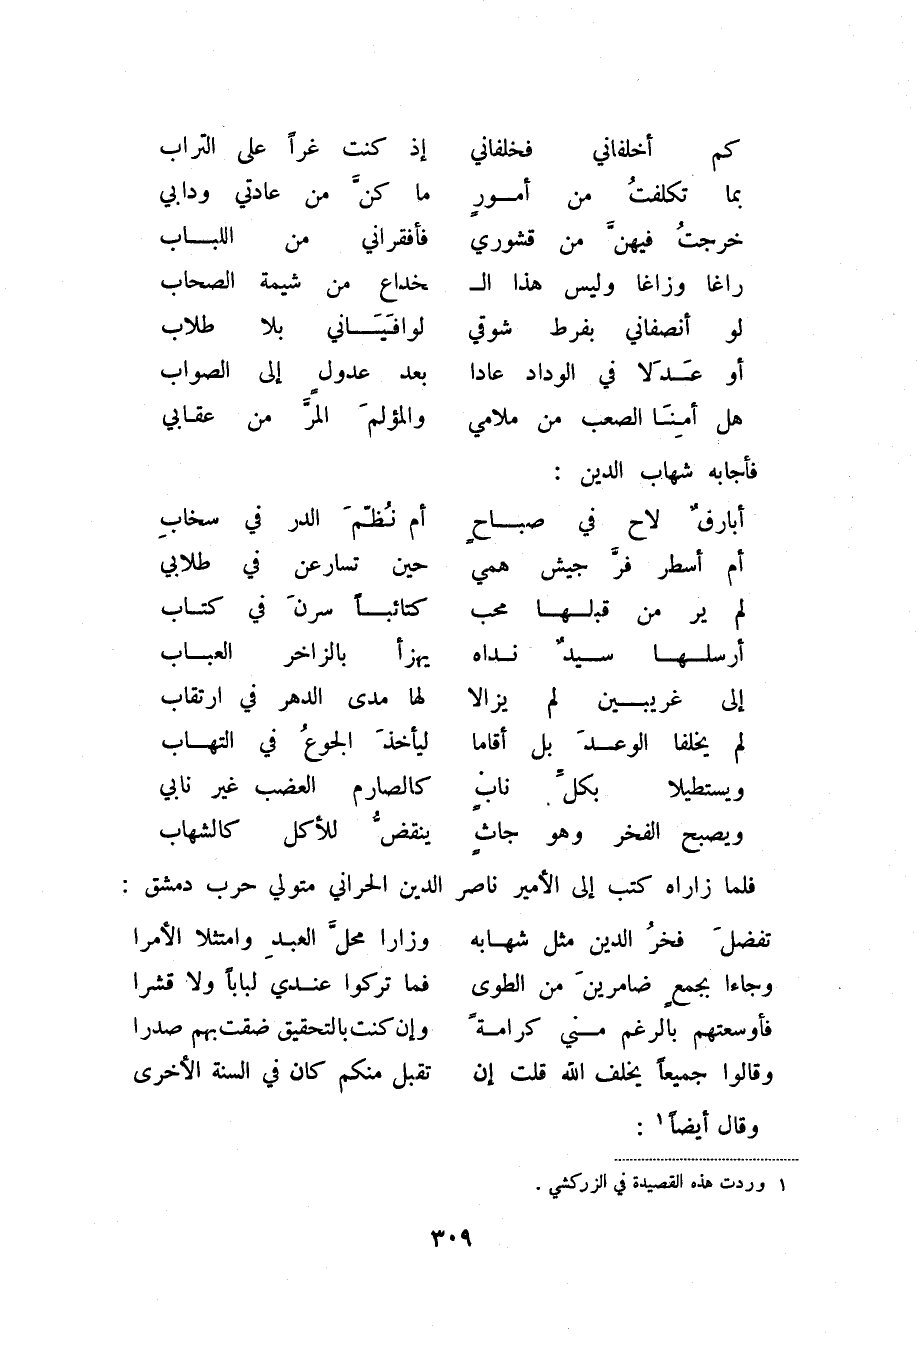 كم أخلفاني فخلفاني إذ كنت غراً على التراب
بما تكلفتُ من أمــورٍ ما كنَّ من عادتي ودابي
خرجتُ فيهنَّ من قشوري فأفقراني من اللبــاب
راغا وزاغا وليس هذا الـ خداع من شيمة الصحاب
لو أنصفاني بفرط شوقي لوافَيَــاني بلا طلاب
أو عَــدَلا في الوداد عادا بعد عدولٍ إلى الصواب
هل أمِنَــا الصعب من ملامي والمؤلمَ المرَّ من عقابي
فأجابه شهاب الدين :
أبارقٌ لاح في صبــاحٍ أم نُظّمَ الدر في سخابِ
أم أسطر فرَّ جيش همي حين تسارعن في طلابي
لم ير من قبلــها محب كتائبــاً سرنَ في كتــاب
أرسلــها ســيدٌ نــداه يهزأ بالزاخر العبــاب
إلى غريبــين لم يزالا لها مدى الدهر في ارتقاب
لم يخلفا الوعــدَ بل أقاما ليأخذَ الجوعُ في التهــاب
ويستطيلا بكلِّ نابٍ كالصارم العضب غير نابي
ويصبح الفخر وهو جاثٍ ينقضُّ للأكل كالشهاب
فلما زاراه كتب إلى الأمير ناصر الدين الحراني متولي حرب دمشق :
تفضلَ فخرُ الدين مثل شهــابه وزارا محلَّ العبــدِ وامتثلا الأمرا
وجاءا بجمعٍ ضامرينَ من الطوى فما تركوا عنــدي لباباً ولا قشرا
فأوسعتهم بالرغم مــني كرامــةً وإن كنت بالتحقيق ضقت بهم صدرا
وقالوا جميعاً يخلف الله قلت إن تقبل منكم كان في السنة الأخرى
وقال أيضاً١ :
١ وردت هذه القصيدة في الزركشي .
٣٠٩